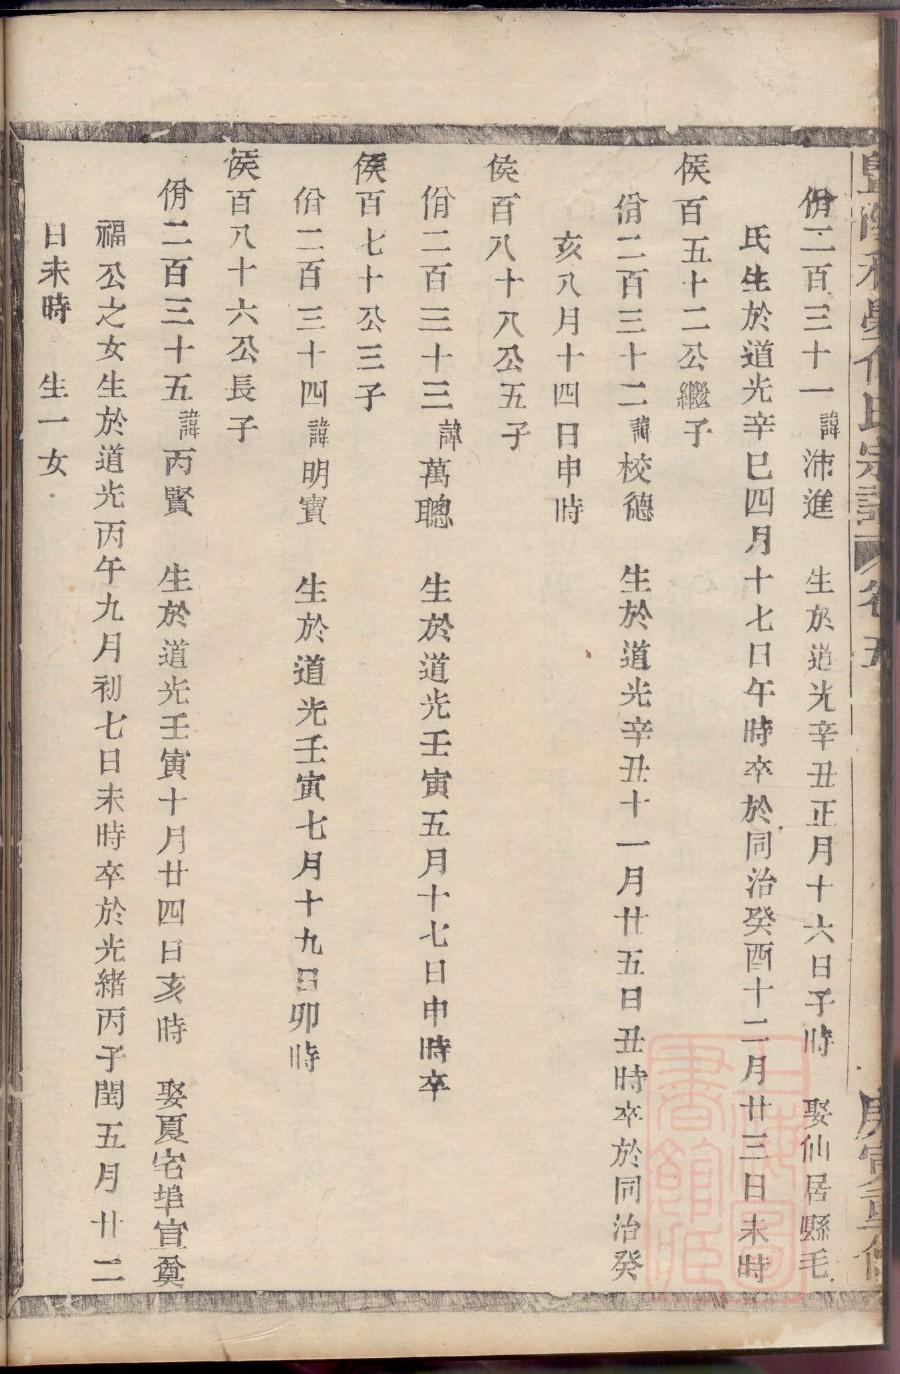 暨陽孝學何氏宗譜 卷五 庚寅重修
佾二百三十一 諱沛進 生於道光辛丑正月十六日子時 娶仙居縣毛
氏生於道光辛巳四月十七日午時卒於同治癸酉十二月廿三日未時
侯百五十二公繼子
佾二百三十二 諱校德 生於道光辛丑十一月廿五日丑時卒於同治癸
亥八月十四日申時
侯百八十八公五子
佾二百三十三 諱萬聰 生於道光壬寅五月十七日申時卒
侯百七十公三子
佾二百三十四 諱明寶 生於道光壬寅七月十九日卯時
侯百八十六公長子
佾二百三十五 諱丙賢 生於道光壬寅十月廿四日亥時 娶夏宅埠宣奠
福公之女生於道光丙午九月初七日未時卒於光緒丙子閏五月廿二
日未時 生一女